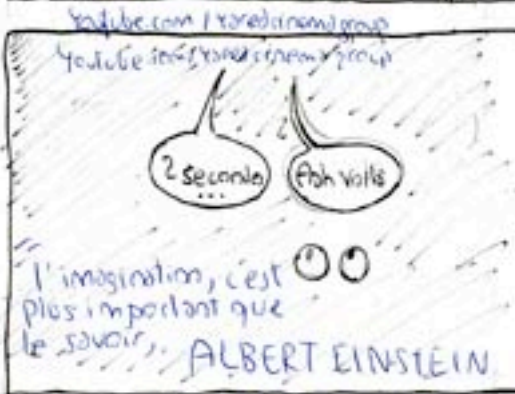 Youtube.com / yaredcinemagroup
Youtube.com / yaredcinemagroup
2 seconds
...
Ash Volts
"l'imagination, c'est
plus important que
le savoir,,
ALBERT EINSTEIN